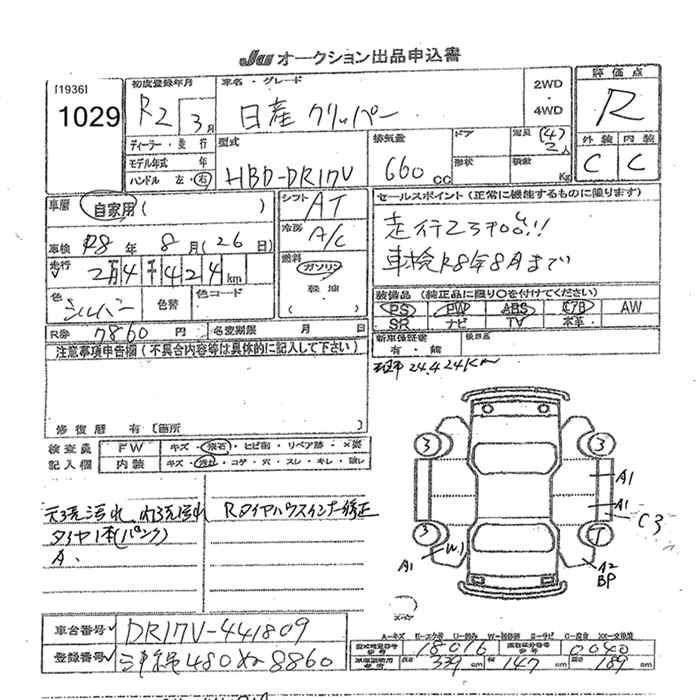 JU オークション出品申込書
[1936]
1029
初度登録年月
R2 3月
車名・グレード
日産 クリッパー
2WD
・
4WD
評価点
R
外装 内装
C C
ディーラー・並行
モデル年式 年
ハンドル 左・右
型式
HBD-DR17V
排気量
660 cc
ドア
形状
定員 (4) 2人
積載 Kg
車歴 自家用( )
車検 R8年 8月(26日)
走行 2万4千424km
色 シルバー
色替
色コード
シフト AT
冷房 A/C
燃料
ガソリン
軽油
( )
セールスポイント(正常に機能するものに限ります)
車検R8年8月まで
装備品(純正品に限り○を付けてください)
PS PW ABS エアB AW
SR ナビ TV 本革
R券 7860円
名変期限 月 日
新車保証書
有・無
注意事項申告欄(不具合内容等は具体的に記入して下さい)
24.424km
修復歴 有〔箇所 〕
検査員
記入欄
FW キズ・飛石・ヒビ割・リペア跡・×要
内装 キズ・汚れ・コゲ・穴・スレ・キレ・
天張汚れ、内張汚れ
タイヤ1本(パンク)
A.
Rタイヤハウスインナー修正
3 3
A1
A1
C3
3 T
A1 W1
A2
BP
A-キズ E-エクボ U-凹み W-補修跡 S-サビ C-腐食 XX-交換済
車台番号 DR17V-441809
登録番号 480 8860
18016 0040
長さ 339cm 幅 147cm 高さ 189cm